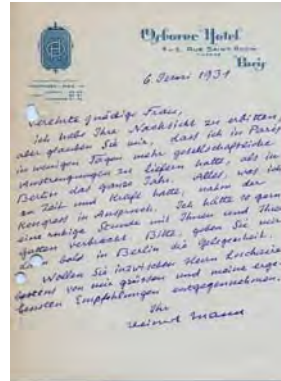 Osborne Hotel
4 & 6, Rue Saint-Roch
Paris
6. Juni 1931
Verehrte gnädige Frau,
ich habe Ihre Nachsicht zu erbitten,
aber glauben Sie mir, dass ich in Paris
in wenigen Tagen mehr gesellschaftliche
Anstrengungen zu liefern hatte, als in
Berlin das ganze Jahr. Alles, was ich
an Zeit und Kraft hatte, nahm der
Kongress in Anspruch. Ich hätte so gern
eine ruhige Stunde mit Ihnen und Ihrem
Gatten verbracht. Bitte, geben Sie mir
dazu bald in Berlin die Gelegenheit.
Wollen Sie inzwischen Herrn Luchaire
bestens von mir grüssen und meine erge-
bensten Empfehlungen entgegennehmen.
Ihr
Heinrich Mann